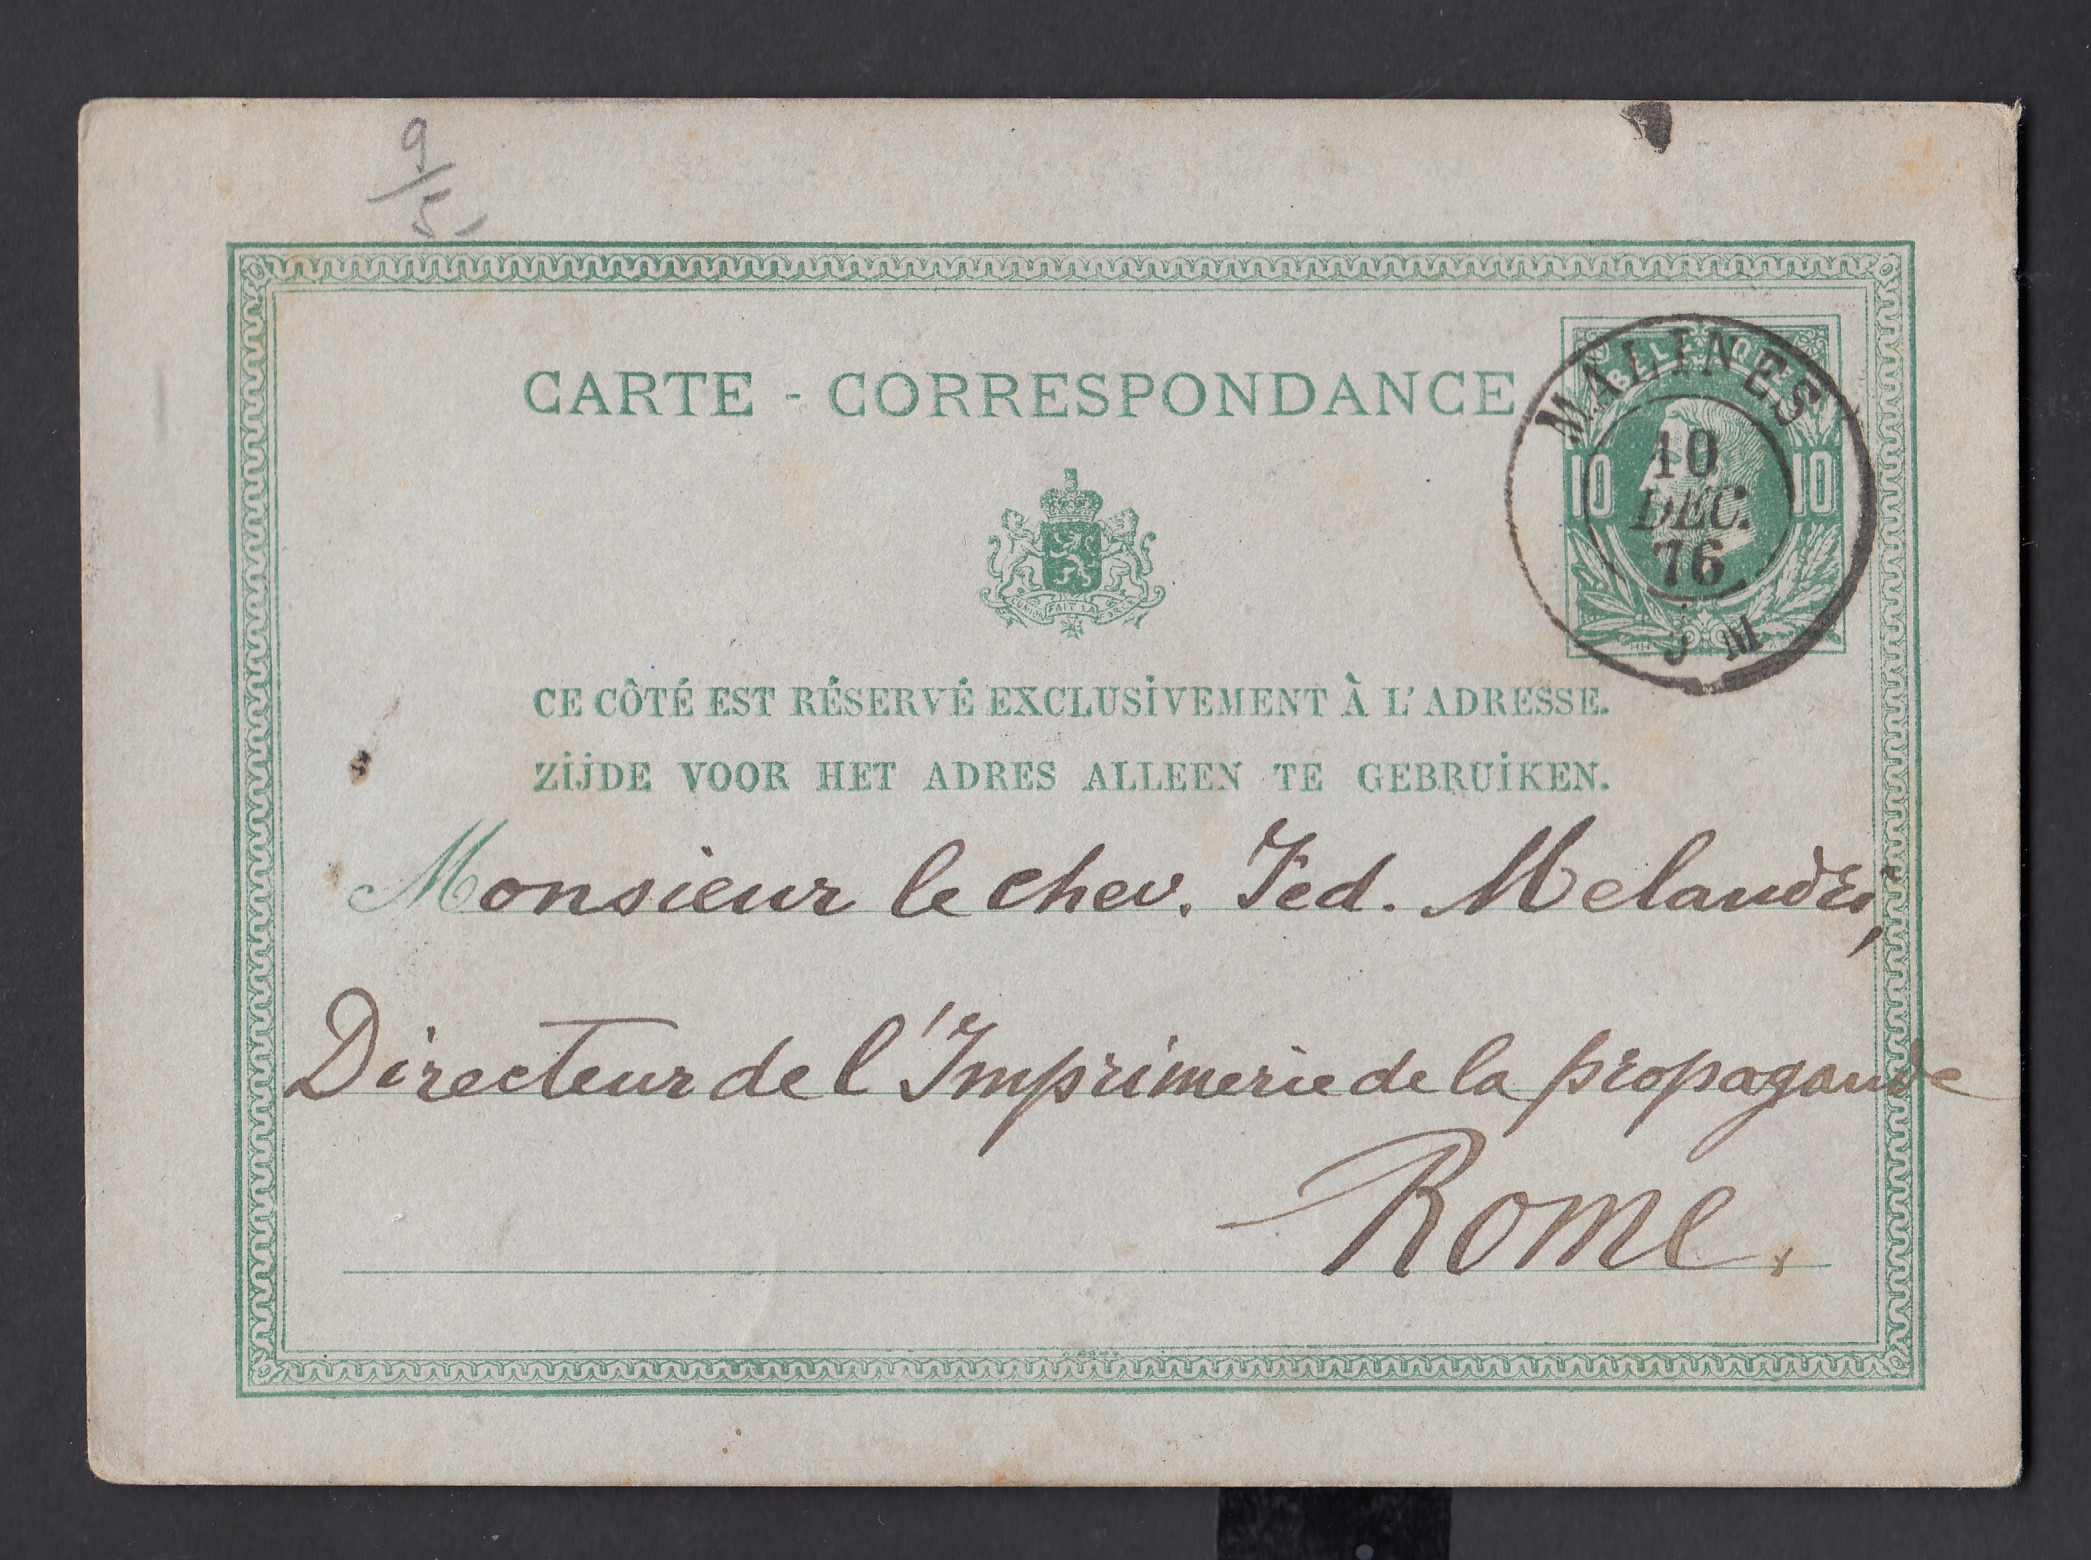 9/5-
CARTE - CORRESPONDANCE
BELGIQUE
10 10
MALINES
10
DEC.
76
M
FAIT LA
CE CÔTÉ EST RÉSERVÉ EXCLUSIVEMENT À L'ADRESSE.
ZIJDE VOOR HET ADRES ALLEEN TE GEBRUIKEN.
Monsieur le chev. Fed. Melandri,
Directeur de l'Imprimerie de la propagande
Rome.